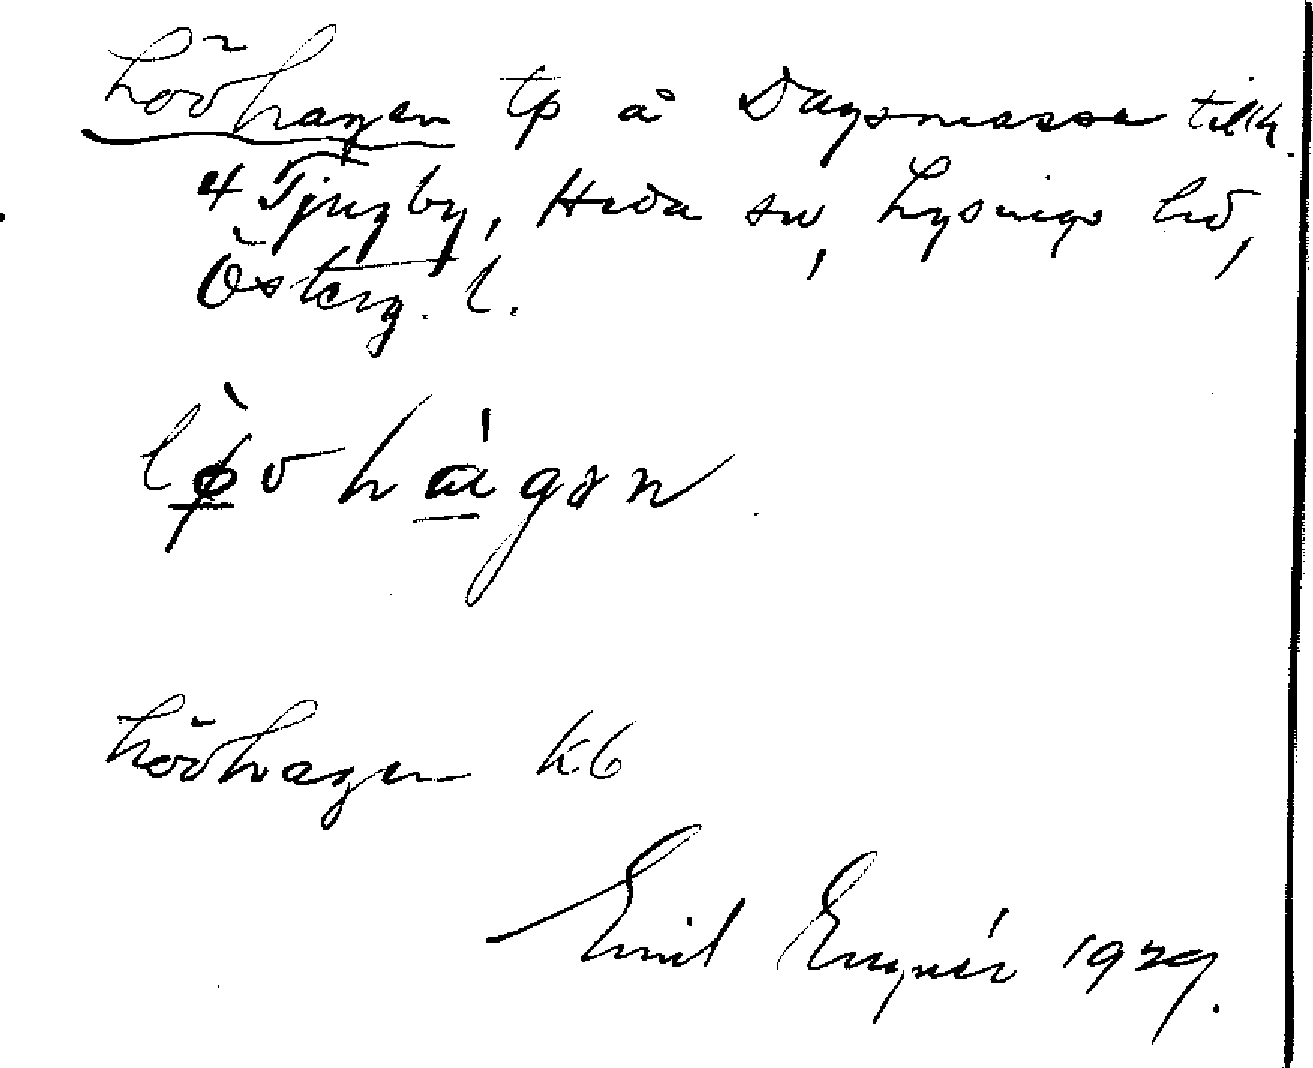 Lövhagen tp å Dagsmosse tillh.
4 Tjugby, Heda sn, Lysings hd,
Österg. l.
lø̱̀vhá̱gən.
Lövhagen kb
Emil Engnér 1929.